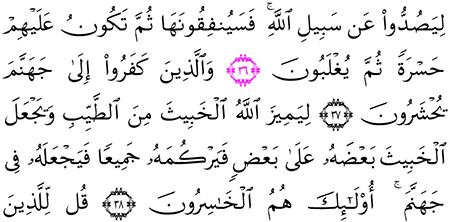 لِيَصُدُّوا۟ عَن سَبِيلِ ٱللَّهِ ۚ فَسَيُنفِقُونَهَا ثُمَّ تَكُونُ عَلَيْهِمْ
حَسْرَةً ثُمَّ يُغْلَبُونَ ۝٣٦ وَٱلَّذِينَ كَفَرُوٓا۟ إِلَىٰ جَهَنَّمَ
يُحْشَرُونَ ۝٣٧ لِيَمِيزَ ٱللَّهُ ٱلْخَبِيثَ مِنَ ٱلطَّيِّبِ وَيَجْعَلَ
ٱلْخَبِيثَ بَعْضَهُۥ عَلَىٰ بَعْضٍ فَيَرْكُمَهُۥ جَمِيعًا فَيَجْعَلَهُۥ فِى
جَهَنَّمَ ۚ أُو۟لَـٰٓئِكَ هُمُ ٱلْخَـٰسِرُونَ ۝٣٨ قُل لِّلَّذِينَ